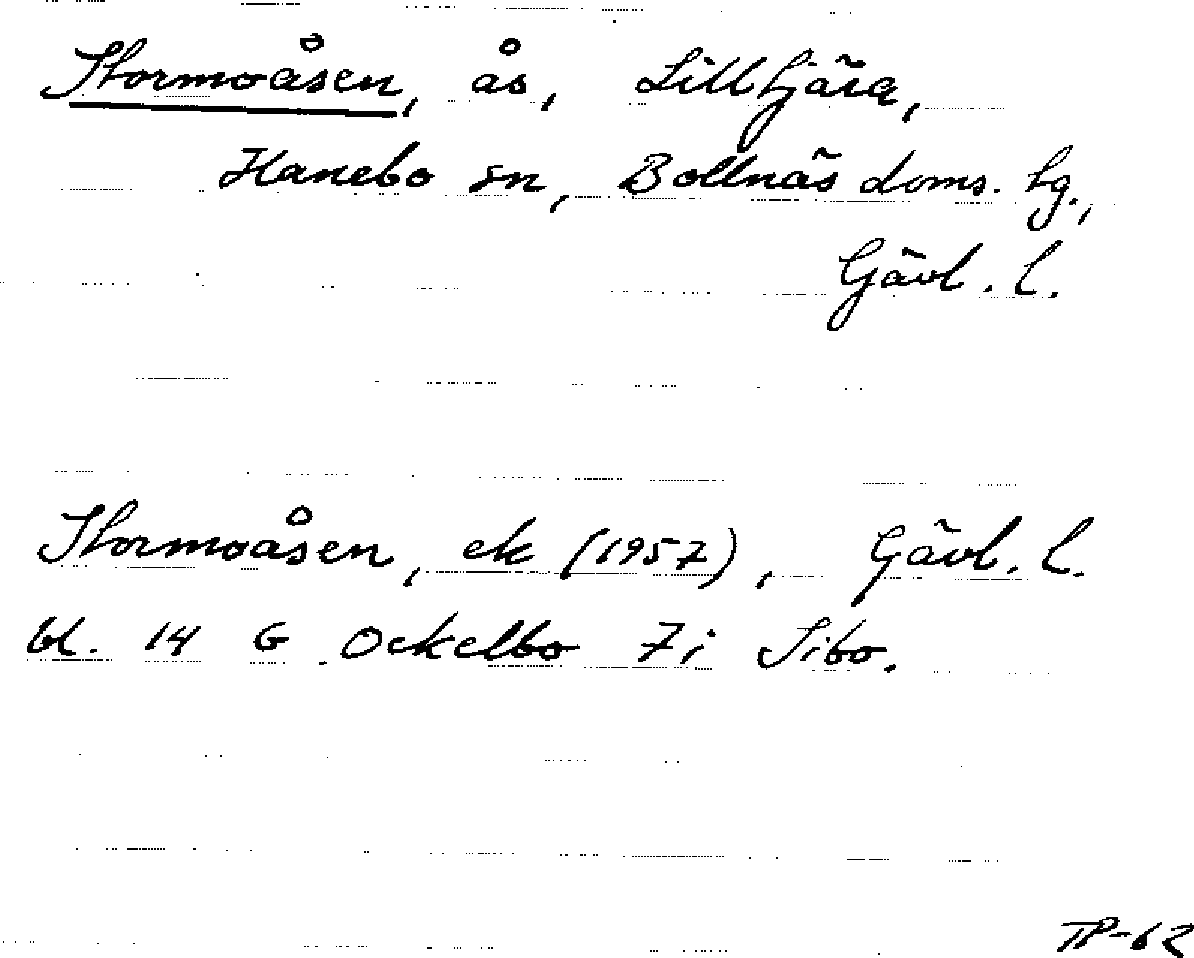 Stormoåsen, ås, Lillbjära,
Hanebo sn, Bollnäs doms. hg.,
Gävl. l.
Stormoåsen, ek (1957), Gävl. l.
bl. 14 G Ockelbo 7i Sibo.
TP-62